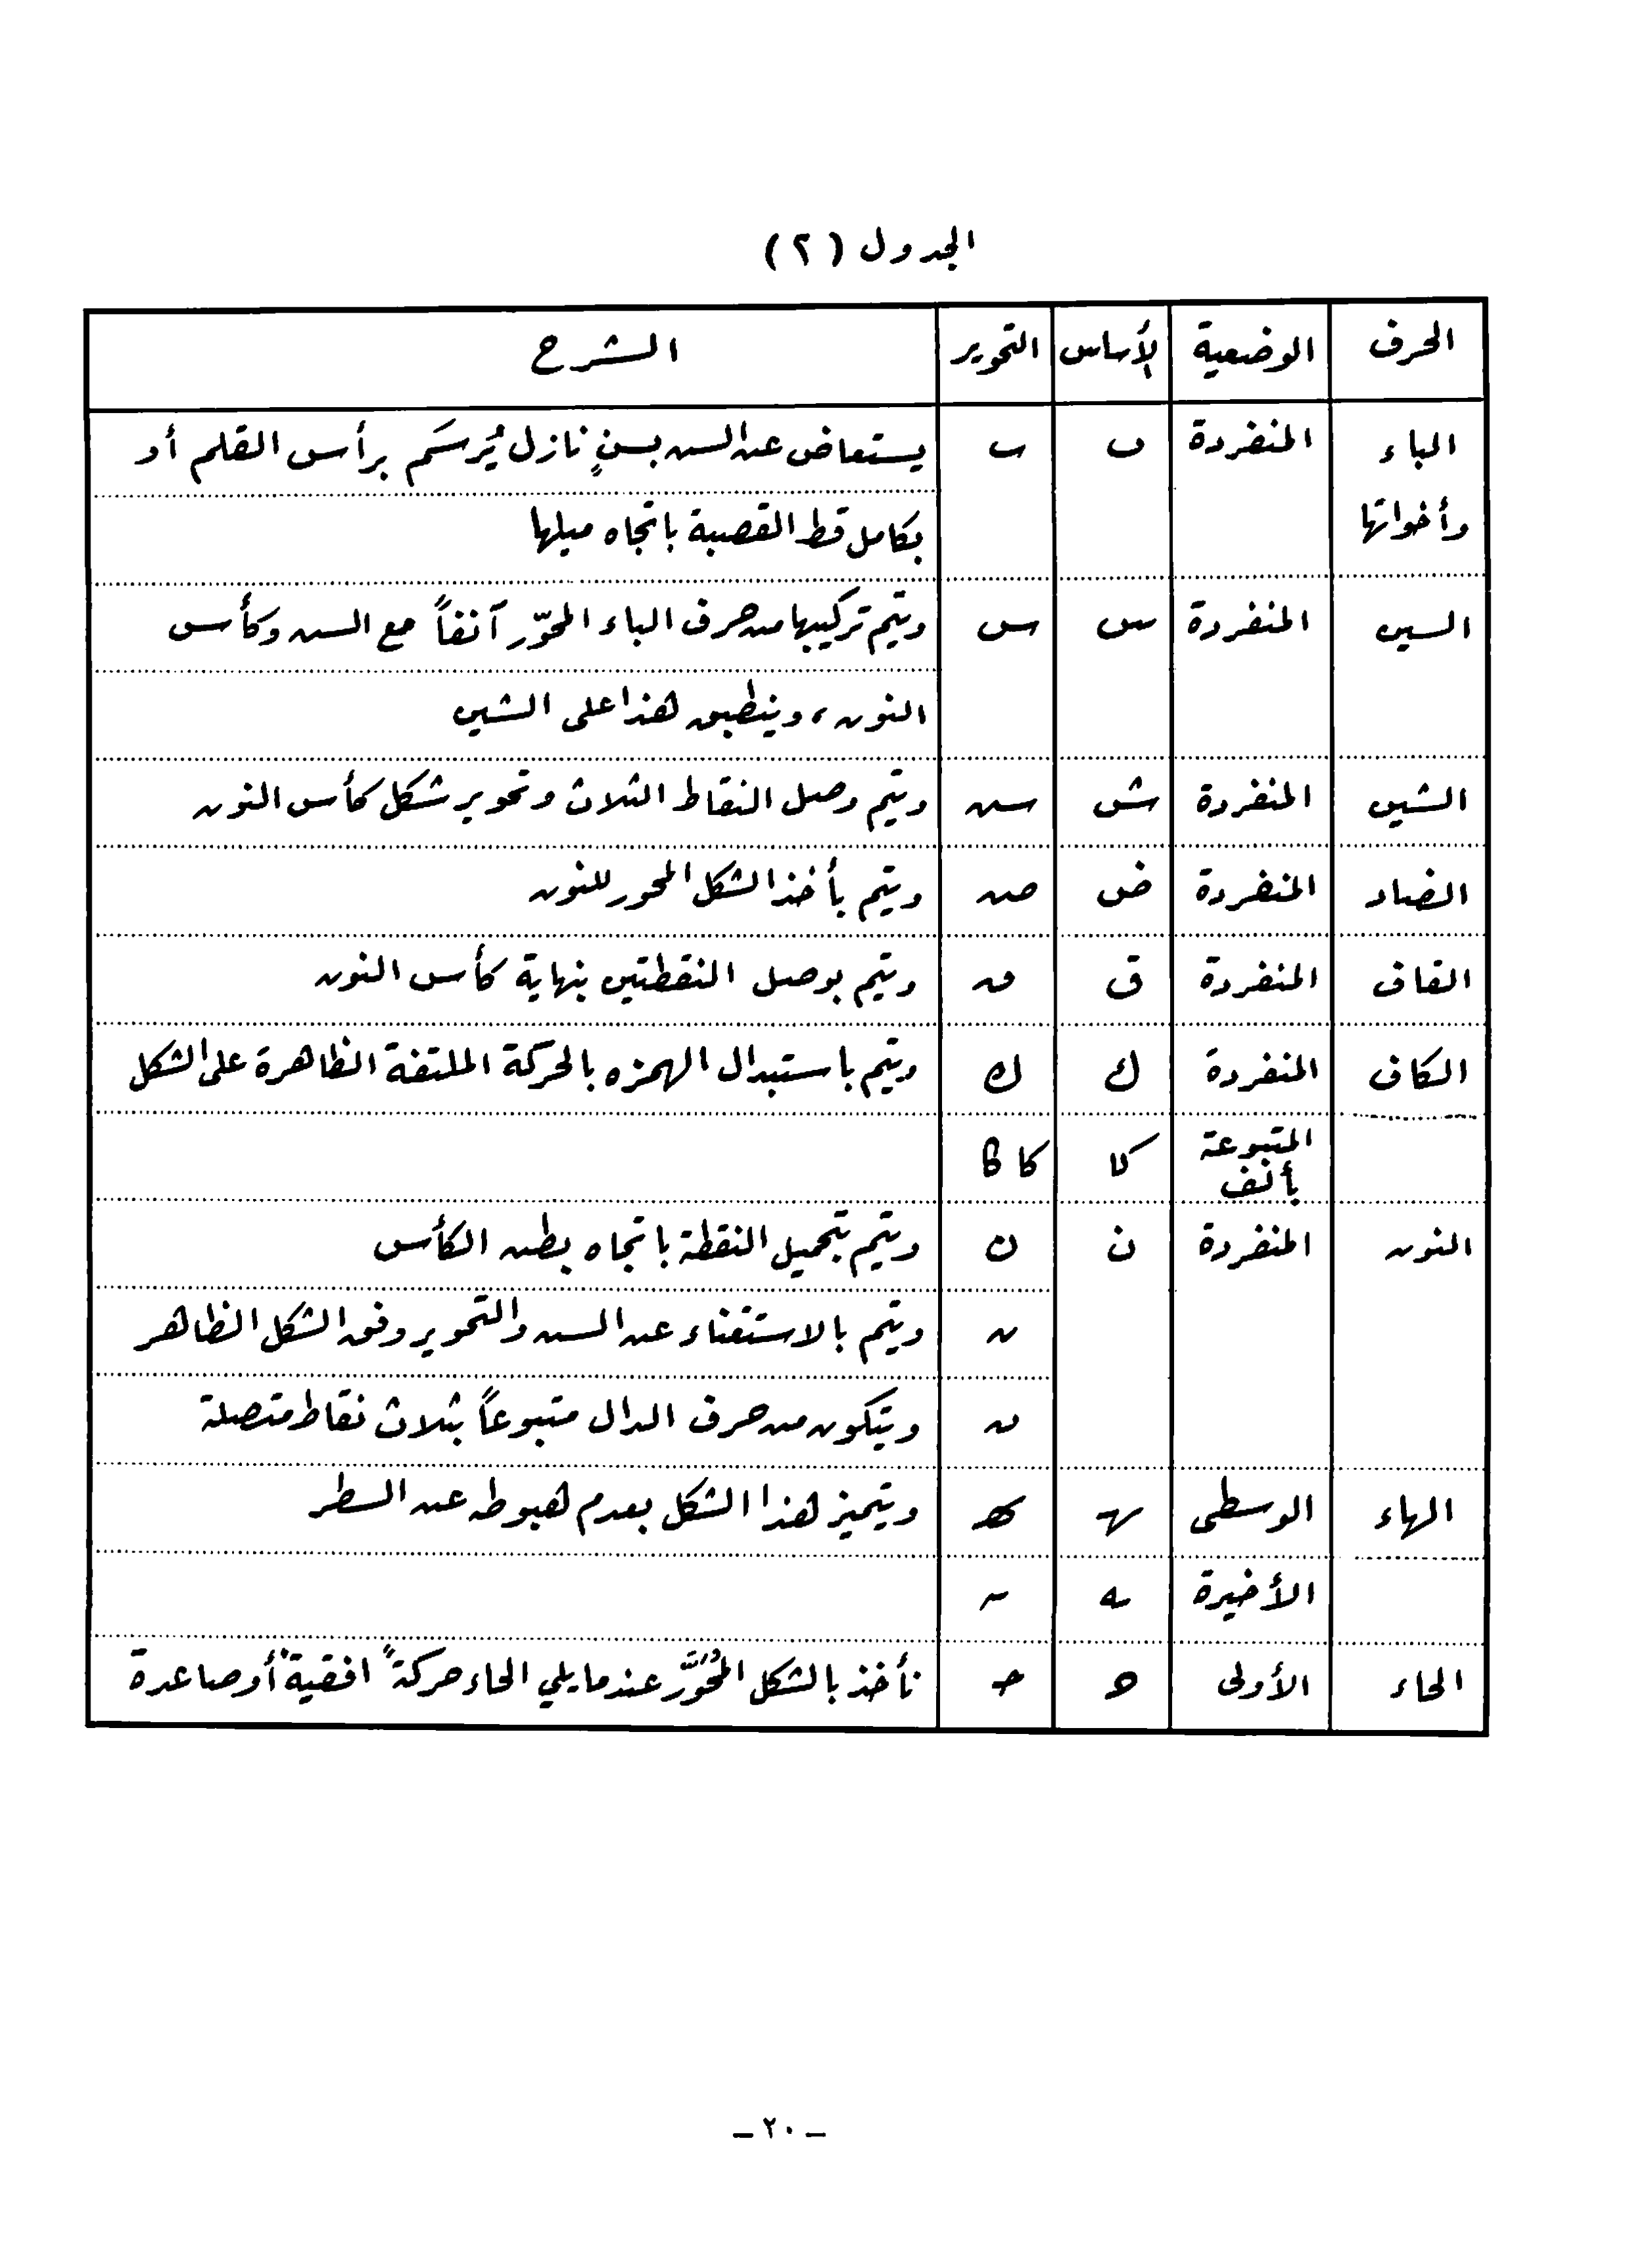 الجدول (٢)
الحرف الوضعية الأساس التحوير الشرح
الباء المنفردة ٮ ٮ يستعاض عن السن بسنٍ نازل يُرسَم برأس القلم أو
وأخواتها بكامل قط القصبة باتجاه ميلها
السين المنفردة س س ويتم تركيبها من حرف الباء المحوّر آنفاً مع السن وكأس
النون، وينطبق هذا على الشين
الشين المنفردة ش ويتم وصل النقاط الثلاث وتحوير شكل كأس النون
الضاد المنفردة ض ويتم بأخذ الشكل المحور للنون
القاف المنفردة ق ويتم بوصل النقطتين بنهاية كأس النون
الكاف المنفردة ك ويتم باستبدال الهمزه بالحركة الملتفة الظاهرة على الشكل
المتبوعة
بألف كا كا كا
النون المنفردة ن ن ويتم بتحميل النقطة باتجاه بطن الكأس
ويتم بالاستغناء عن السن والتحوير وفق الشكل الظاهر
ويتكون من حرف الدال متبوعاً بثلاث نقاط متصلة
الهاء الوسطى ـهـ ـهـ ويتميز هذا الشكل بعدم هبوطه عن السطر
الأخيرة ـه
الحاء الأولى حـ نأخذ بالشكل المُحَوَّر عندما يلي الحاء حركةً افقيةً أو صاعدة
ـ ٢٠ ـ